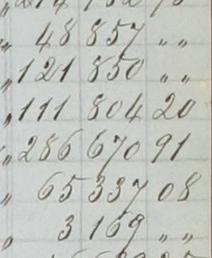 „ 48 857 „ „
„ 121 850 „ „
„ 111 804 20
„ 286 670 91
„ 65 337 08
„ 3 169 „ „